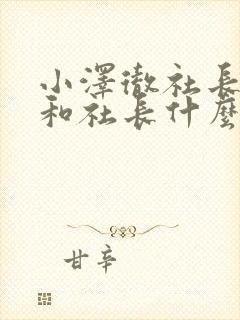 小澤徹社長
和社長什麼
甘辛